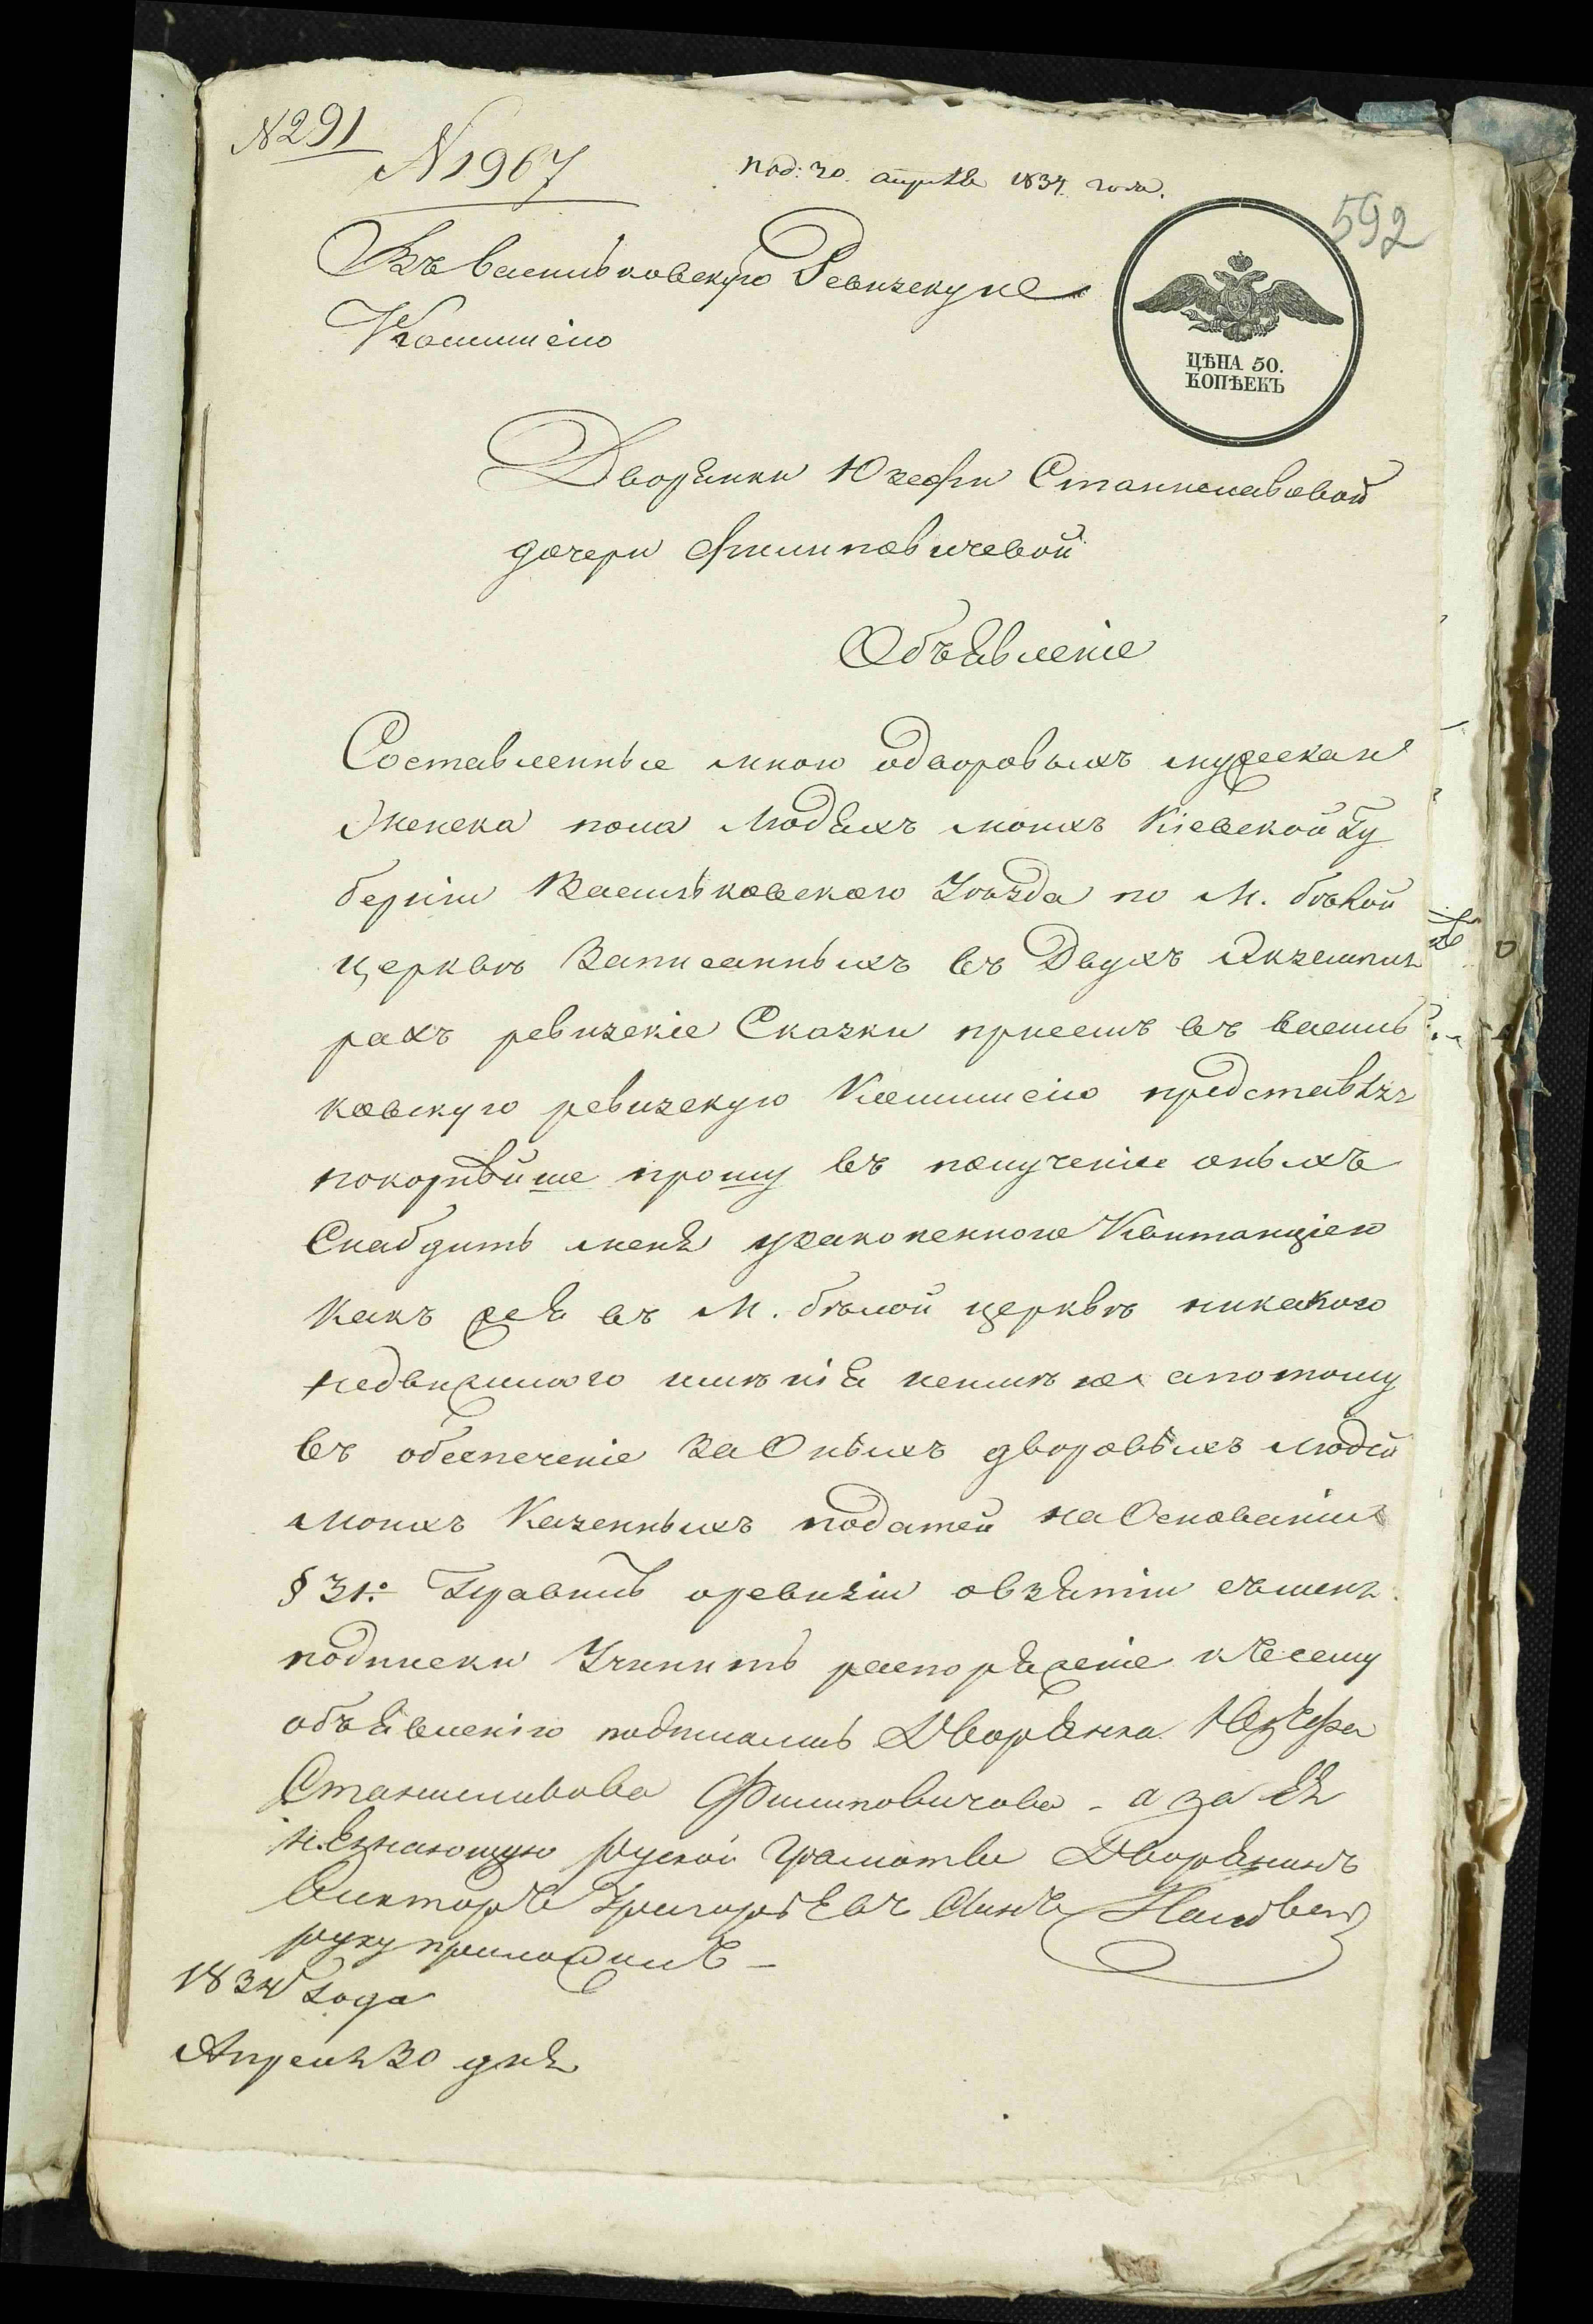 №291
№1967
под: 30. апреля 1834 года.
592
Въ васильковскую Ревизскую
Коммисію
ЦѢНА 50.
КОПѢЕКЪ
Дворянки Юзефи Станиславовой
дочери Филиповичевой
Объявленіе
Составленные мною одворовыхъ мужеска и
женска пола людяхъ моихъ Кіевской Гу
берніи Васильковскаго Уѣзда по М. бѣлой
церквѣ Записанныхъ въ Двухъ Экземпля
рахъ ревизскіе Сказки присемъ въ василь
ковскую ревизскую Коммисію представляя
покорнѣйше прошу въ полученіи оныхъ
Снабдить меня узаконенною Квитанціею
какъ же я въ М. бѣлой церквѣ никакого
недвижимого имѣнія неимѣю а потому
въ обеспеченіе За Оныхъ дворовыхъ людей
моихъ Казенныхъ податей на Основаніи
§ 31: Правилъ оревизіи овзятіи съ меня
подписки Учинить распоряженіе къ сему
объявленію подписалась Дворянка Юзефа
Станиславова Филиповичова - а за Ея
незнающую руской Грамоты Дворянинъ
Викторъ Григорьевъ Синъ
руку приложилъ -
1834 Года
Апреля 30 дня